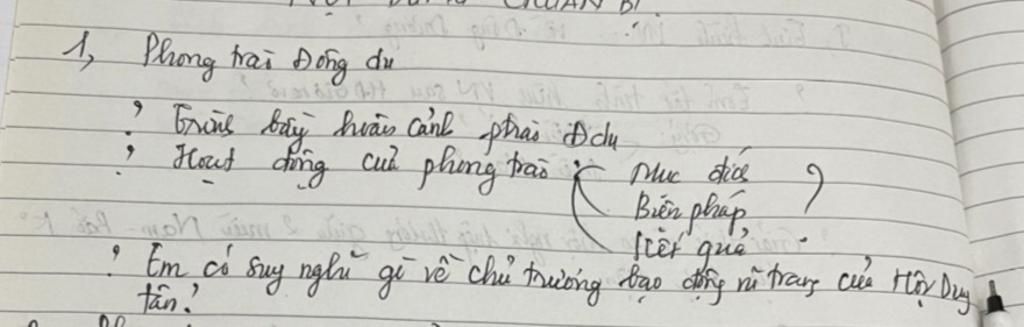 CHUẨN BỊ
1, Phong trào Đông du
? Trình bày hoàn cảnh ptrào Đdu
? Hoạt động của phong trào Mục đích ?
Biện pháp
Kết quả
? Em có suy nghĩ gì về chủ trương bạo động vũ trang của Hội Duy
tân?